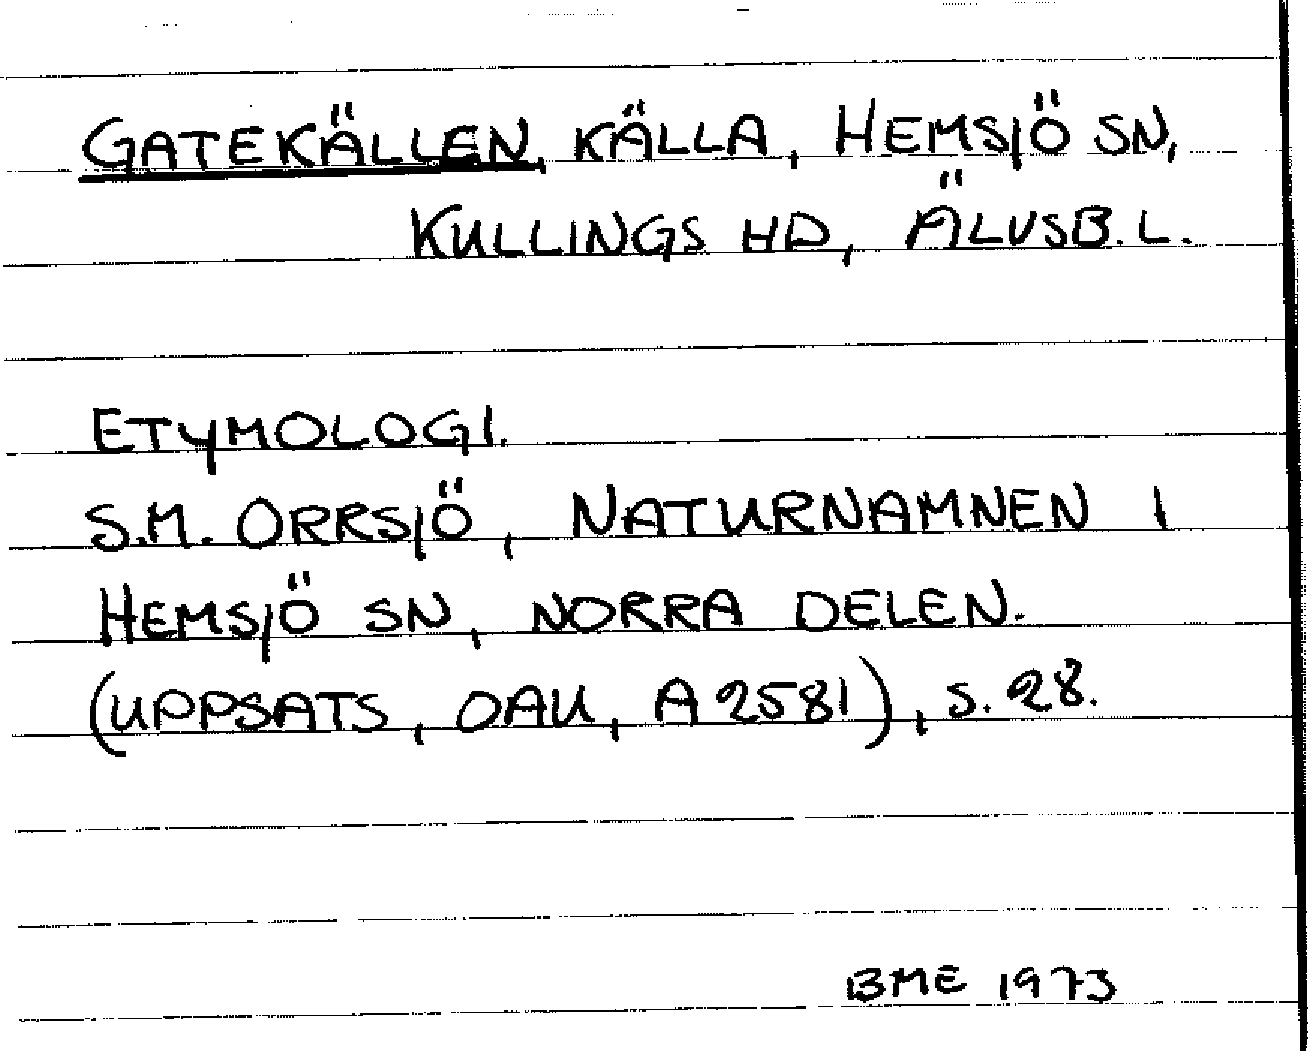 GATEKÄLLEN, KÄLLA, HEMSJÖ SN,
KULLINGS HD, ÄLVSB. L.
ETYMOLOGI.
S.M. ORRSJÖ, NATURNAMNEN I
HEMSJÖ SN, NORRA DELEN.
(UPPSATS, OAU, A 2581), S. 28.
BME 1973